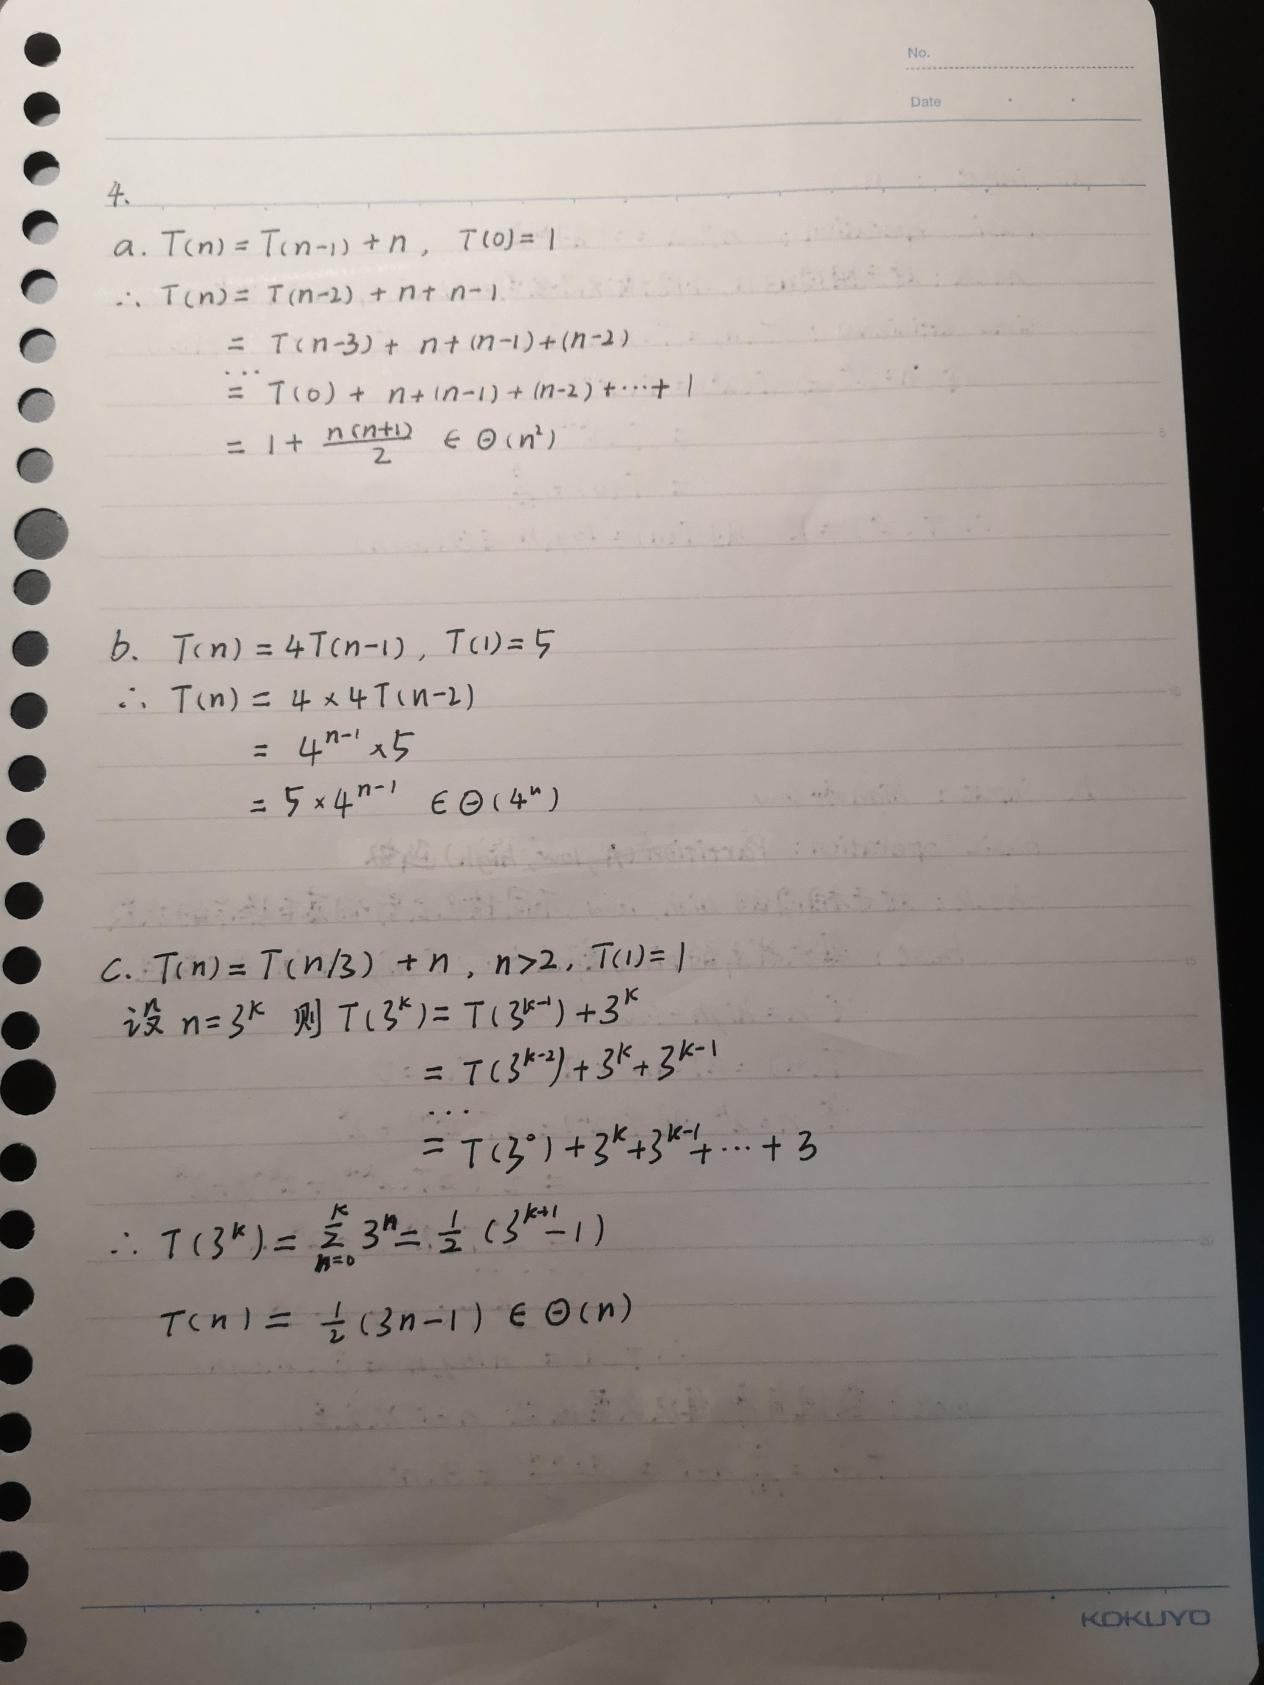 No.
Date
4.
a. T(n) = T(n-1) + n , T(0) = 1
∴ T(n) = T(n-2) + n + n-1
= T(n-3) + n + (n-1) + (n-2)
...
= T(0) + n + (n-1) + (n-2) + ... + 1
= 1 + n(n+1)/2 ∈ Θ(n²)
b. T(n) = 4T(n-1) , T(1) = 5
∴ T(n) = 4 × 4T(n-2)
= 4ⁿ⁻¹ × 5
= 5 × 4ⁿ⁻¹ ∈ Θ(4ⁿ)
c. T(n) = T(n/3) + n , n>2 , T(1) = 1
设 n = 3ᵏ 则 T(3ᵏ) = T(3ᵏ⁻¹) + 3ᵏ
= T(3ᵏ⁻²) + 3ᵏ + 3ᵏ⁻¹
...
= T(3⁰) + 3ᵏ + 3ᵏ⁻¹ + ... + 3
∴ T(3ᵏ) = Σₙ₌₀ᵏ 3ⁿ = 1/2 (3ᵏ⁺¹ - 1)
T(n) = 1/2 (3n-1) ∈ Θ(n)
KOKUYO